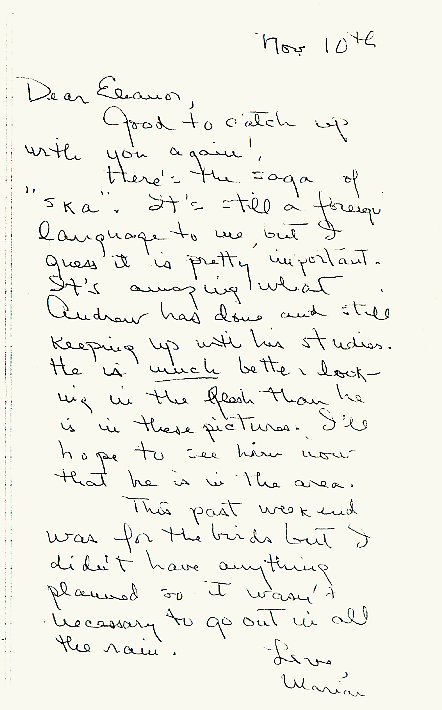 Nov 10th
Dear Eleanor,
Good to catch up
with you again!
Here's the saga of
"Ska". It's still a foreign
language to me, but I
guess it is pretty important.
It's amazing what
Andrew has done and still
keeping up with his studies.
He is much better look-
ing in the flesh than he
is in these pictures. I'll
hope to see him now
that he is in the area.
This past weekend
was for the birds but I
didn't have anything
planned so it wasn't
necessary to go out in all
the rain.
Love,
Marian